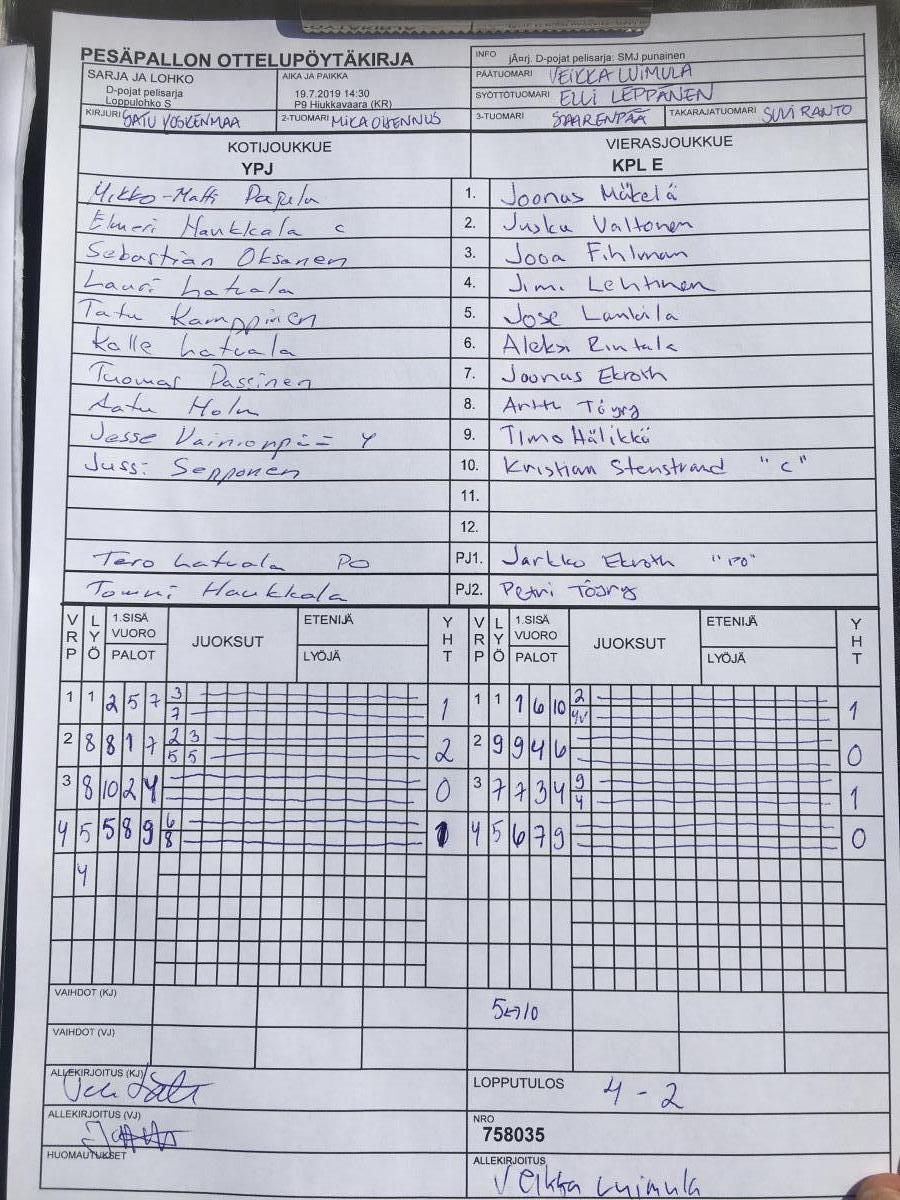 PESÄPALLON OTTELUPÖYTÄKIRJA
INFO jÃ¤rj. D-pojat pelisarja: SMJ punainen
SARJA JA LOHKO
D-pojat pelisarja
Loppulohko S
AIKA JA PAIKKA
19.7.2019 14:30
P9 Hiukkavaara (KR)
PÄÄTUOMARI VEIKKA LUIMULA
SYÖTTÖTUOMARI ELLI LEPPÄNEN
KIRJURI SATU YOSKENMAA
2-TUOMARI MIKA OHENNUS
3-TUOMARI SAARENPÄÄ
TAKARAJATUOMARI SUVI RANTO
KOTIJOUKKUE
YPJ
VIERASJOUKKUE
KPL E
Mikko-Matti Pajula 1. Joonas Mäkelä
Elmeri Haukkala c 2. Jusku Valtonen
Sebastian Oksanen 3. Jooa Fihlman
Lauri Latvala 4. Jimi Lehtinen
Tatu Kamppinen 5. Jose Lankila
Kalle Latvala 6. Aleksi Rintala
Tuomas Passinen 7. Joonas Ekroth
Aatu Holm 8. Arttu Töyry
Jesse Vainionpää Y 9. Timo Hälikkö
Jussi Sepponen 10. Kristian Stenstrand "C"
11.
12.
Tero Latvala PO PJ1. Jarkko Ekroth "PO"
Tommi Haukkala PJ2. Petri Töyry
VRP LYÖ 1.SISÄ VUORO PALOT JUOKSUT ETENIJÄ LYÖJÄ YHT VRP LYÖ 1.SISÄ VUORO PALOT JUOKSUT ETENIJÄ LYÖJÄ YHT
1 1 2 5 7 3 7 1 1 1 1 6 10 2 4V 1
2 8 8 1 7 2 3 5 5 2 2 9 9 4 6 0
3 8 10 2 4 0 3 7 7 3 4 9 4 1
4 5 5 8 9 6 8 1 4 5 6 7 9 0
4
VAIHDOT (KJ) 5↔10
VAIHDOT (VJ)
ALLEKIRJOITUS (KJ)
LOPPUTULOS 4 - 2
ALLEKIRJOITUS (VJ)
NRO
758035
HUOMAUTUKSET
ALLEKIRJOITUS
Veikka Luimula